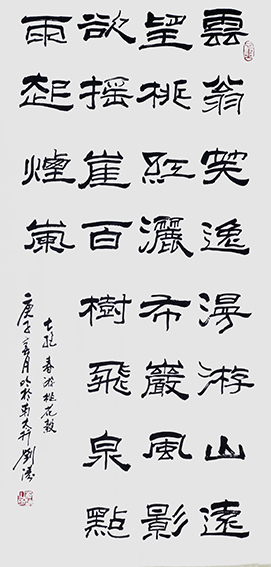 雲翁笑逸漫游山遠
望桃紅灑布巖風影
欲摇崖百樹飛泉點
雨起煙嵐
七絶 春游桃花穀
庚子月吟於南太行 劉濤